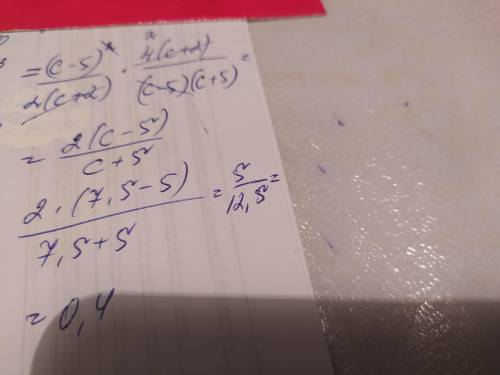 = (c-5)² / 2(c+2) · 4(c+2) / (c-5)(c+5) =
= 2(c-5) / c+5
2 · (7,5-5) / 7,5+5 = 5 / 12,5 =
= 0,4